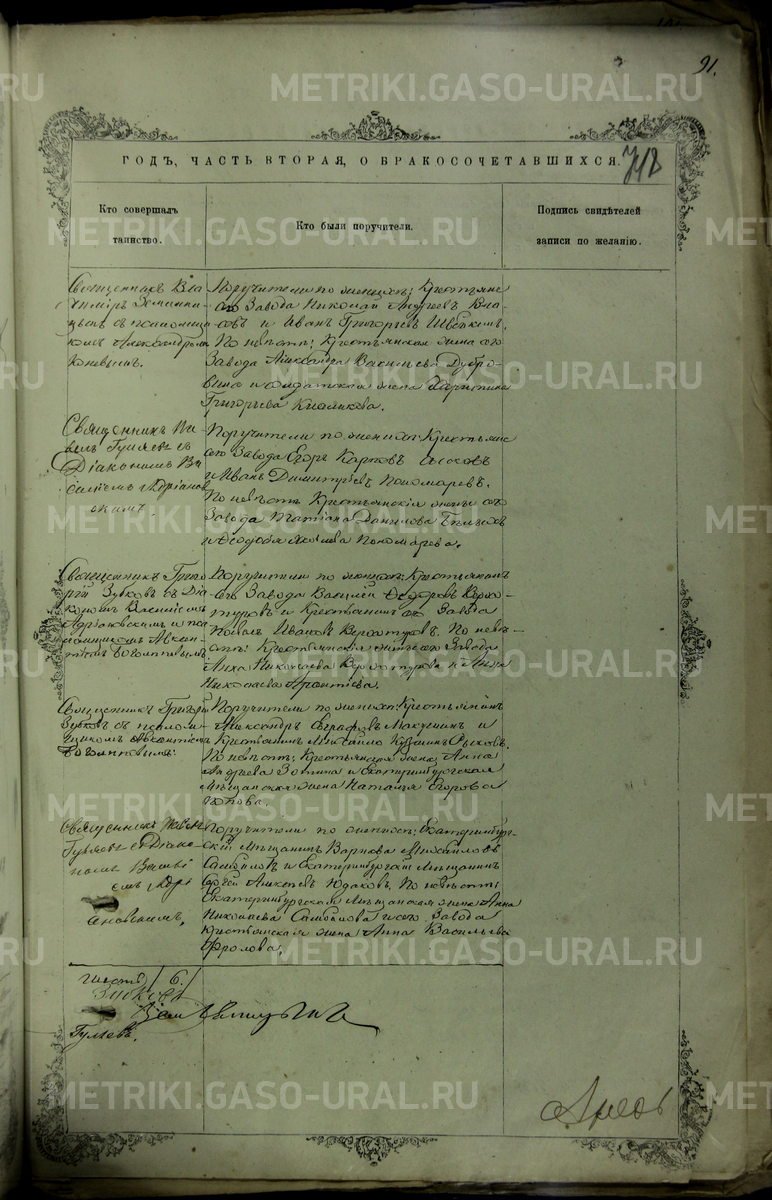 91.
ГОДЪ, ЧАСТЬ ВТОРАЯ, О БРАКОСОЧЕТАВШИХСЯ.
718
Кто совершалъ
таинство.
Кто были поручители.
Подпись свидѣтелей
записи по желанію.
Священникъ Вла
диміръ Земляни
цынъ съ псаломщи
комъ Александромъ
Коневымъ.
Поручители по женихѣ: Крестьяне
сего Завода Николай Андреевъ Вла
совъ и Иванъ Григорьевъ
По невѣстѣ: Крестьянская жена сего
Завода Александра Васильева Дубро
вина и солдатская жена Харитина
Григорьева
Священникъ Па
велъ Гуляевъ съ
Діакономъ Ва
силіемъ Адріанов
скимъ.
Поручители по женихѣ: Крестьяне
сего Завода Егоръ Карповъ Сысковъ
и Иванъ Димитріевъ Пономаревъ.
По невѣстѣ Крестьянскія жены сего
Завода Татіана Данилова
и Ѳеодосья Пономарева.
Священникъ Григо
рій Зубковъ съ Діа
кономъ Василіемъ
Адріановскимъ и пса
ломщикомъ Авксен
тіемъ Боголѣповымъ.
Поручители по женихѣ: Крестьянинъ
сего Завода Василій Ѳедоровъ Верхо
туровъ и Крестьянинъ сего Завода
Павелъ Ивановъ Верхотуровъ. По невѣ
стѣ: Крестьянскія сего Завода
Анна Николаева Верхотурова и Анна
Николаева
Священникъ Григорій
Зубковъ съ псалом
щикомъ Авксентіемъ
Боголѣповымъ.
Поручители по женихѣ: Крестьянинъ
Александръ Евграфовъ и
Крестьянинъ Михайло Рыковъ.
По невѣстѣ: Крестьянская жена Анна
Андреева Зотина и Екатеринбургская
Мѣщанская жена Наталья Егорова
Попова.
Священникъ Павелъ
Гуляевъ съ Діако
номъ Василі
емъ Адрі
ановскимъ.
Поручители по женихѣ: Екатеринбург
скій Мѣщанинъ Михайловъ
Самойловъ и Екатеринбургскій Мѣщанинъ
Сергѣй Алексѣевъ Юдаковъ. По невѣстѣ:
Екатеринбургская Мѣщанская жена Анна
Николаева Самойлова и сего Завода
Крестьянская жена Анна Васильева
Фролова.
6.
Гуляевъ.
METRIKI.GASO-URAL.RU